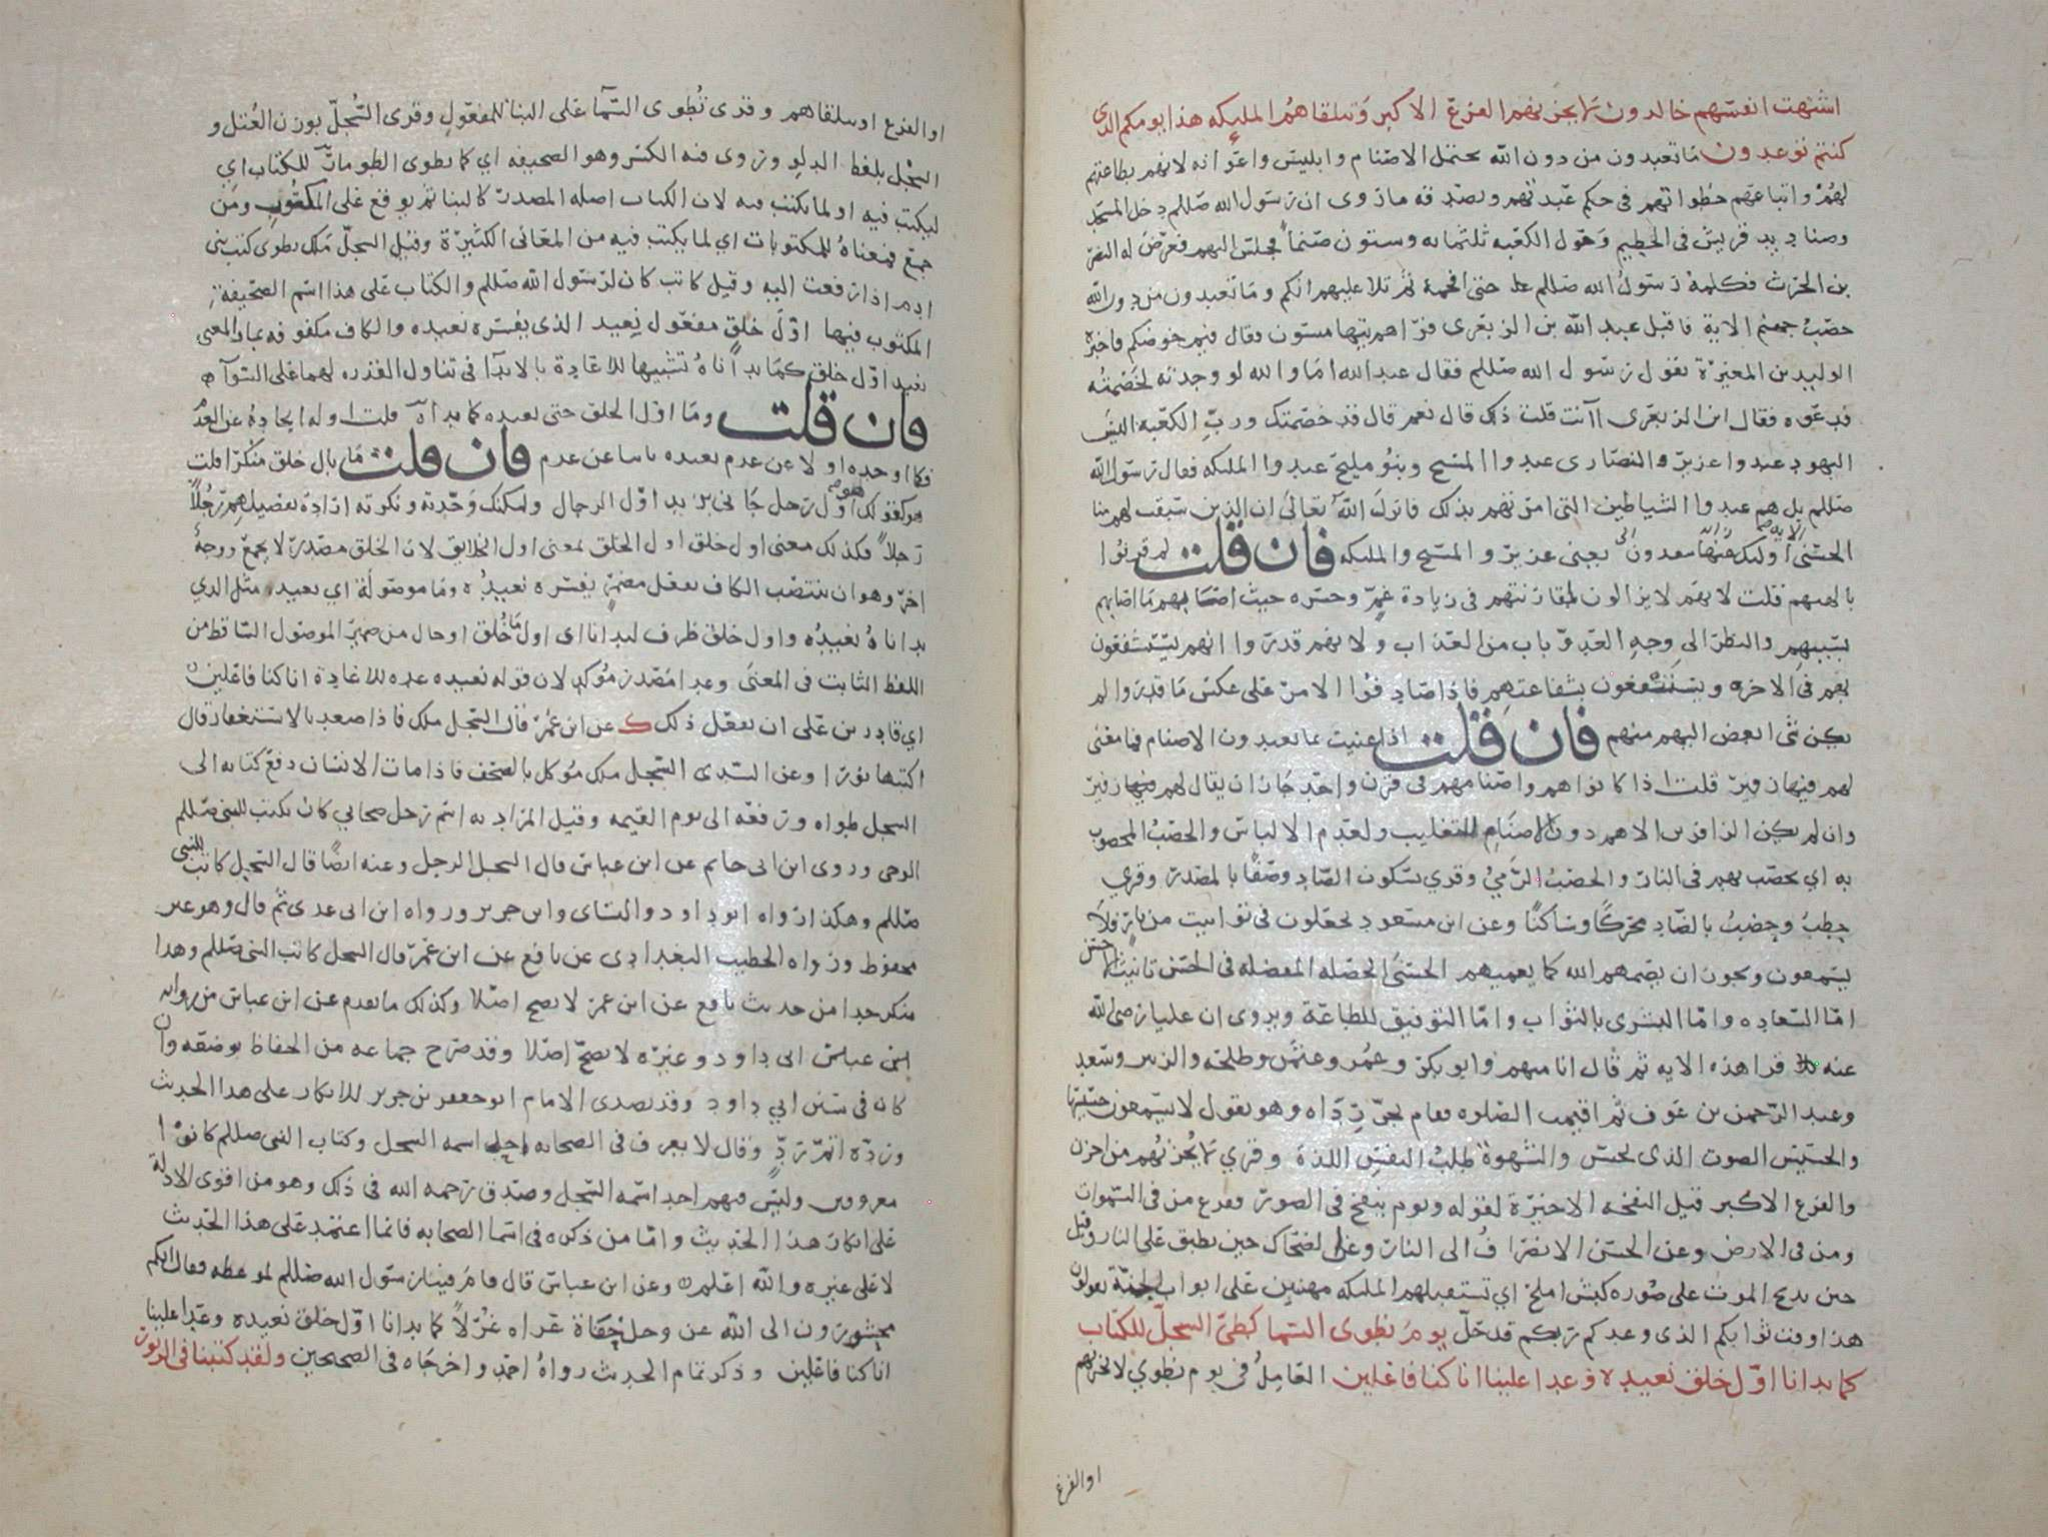 اشتهت انفسهم خالدون لا يحزنهم الفزع الاكبر وتتلقاهم المليكه هذا يومكم الذي
كنتم توعدون ما تعبدون من دون الله يحتمل الاصنام وابليس واعوانه لانهم بطاعتهم
لهم واتباعهم خطواتهم في حكم عبدتهم ويصدقه ما روى ان رسول الله صللم دخل المسجد
وصناديد قريش في الحطيم وحول الكعبه ثلثمايه وستون صنما فجلس اليهم فعرض له النضر
بن الحرث فكلمه رسول الله صللم حتى افحمه ثم تلا عليهم انكم وما تعبدون من دون الله
حصب جهنم الاية فاقبل عبد الله بن الزبعرى فراهم يتهامسون فقال فيم خوضكم فاخبره
الوليد بن المغيرة بقول رسول الله صللم فقال عبد الله اما والله لو وجدته لخصمته
فدعوه فقال ابن الزبعرى اانت قلت ذلك قال نعم قال قد خصمتك ورب الكعبه اليس
اليهود عبدوا عزير والنصارى عبدوا المسيح وبنو مليح عبدوا المليكه فقال رسول الله
صللم بل هم عبدوا الشياطين التي امرتهم بذلك فانزل الله تعالى ان الذين سبقت لهم منا
الحسنى اوليك عنها مبعدون يعنى عزير والمسيح والمليكه فان قلت لم قرنوا
بالهتهم قلت لانهم لا يزالون لمقارنتهم في زيادة غم وحسره حيث اصابهم ما اصابهم
بسببهم والنظر الى وجه العدو باب من العذاب ولانهم قدروا انهم يستشفعون
بهم في الاخره ويستنفعون بشفاعتهم فاذا صادفوا الامر على عكس ما قدروا لم
يكن شى ابغض اليهم منهم فان قلت اذا عنيت بما تعبدون الاصنام فما معنى
لهم فيها زفير قلت اذا كانوا هم واصنامهم في قرن واحد جاز ان يقال لهم فيها زفير
وان لم يكن الزافرين الا هم دون الاصنام للتغليب ولعدم الالباس والحصب المحصوب
به اي يحصب بهم في النار والحصب الرمي وقري بسكون الصاد وصفا بالمصدر وقري
حطب وحضب بالضاد محركا وساكنا وعن ابن مسعود يجعلون في توابيت من نار فلا
يسمعون ويجوز ان يصمهم الله كما يعميهم الحسنى الخصله المفضله في الحسن تانيث الاحسن
اما السعاده واما البشرى بالثواب واما التوفيق للطاعة ويروى ان عليا رضى الله
عنه قرا هذه الايه ثم قال انا منهم وابو بكر وعمر وعثمن وطلحه والزبير وسعد
وعبد الرحمن بن عوف ثم اقيمت الصلوه فقام يجر رداه وهو يقول لا يسمعون حسيسها
والحسيس الصوت الذى يحس والشهوة طلب النفس اللذة وقري لا يحزنهم من احزن
والفزع الاكبر قيل النفخه الاخيرة لقوله ويوم ينفخ في الصور ففزع من في السموات
ومن في الارض وعن الحسن الانصراف الى النار وعن الضحاك حين يطبق على النار وقيل
حين يذبح الموت على صوره كبش املح اي تستقبلهم المليكه مهنين على ابواب الجنة يقولون
هذا وقت ثوابكم الذى وعدكم ربكم قد حل يوم نطوى السما كطى السجل للكتاب
كما بدانا اول خلق نعيده وعدا علينا انا كنا فاعلين العامل في يوم نطوي لا يحزنهم
او الفزع
او الفزع او تتلقاهم وقرى تطوى السما على البنا للمفعول وقرى السجل بوزن العتل و
السجل بلفظ الدلو وروى فيه الكسر وهو الصحيفه اي كما يطوى الطومار للكتاب اي
ليكتب فيه او لما يكتب فيه لان الكتاب اصله المصدر كالبنا ثم يوقع على المكتوب ومن
جمع فمعناه للمكتوبات اي لما يكتب فيه من المعانى الكثيرة وقيل السجل ملك يطوى كتب بني
ادم اذا رفعت اليه وقيل كاتب كان لرسول الله صللم والكتاب على هذا اسم الصحيفة
المكتوب فيها اول خلق مفعول نعيد الذى يفسره نعيده والكاف مكفوفه بما والمعنى
نعيد اول خلق كما بداناه تشبيها للاعادة بالابدا في تناول القدره لهما على السوآ
فان قلت وما اول الخلق حتى نعيده كما بداه قلت اوله ايجاده عن العدم
فكما اوجده اولا عن عدم يعيده ثانيا عن عدم فان قلت ما بال خلق منكرا قلت
هو كقولك هو اول رجل جاني تريد اول الرجال ولكنك وحدته ونكرته ارادة تفصيلهم رجلا
رجلا فكذلك معنى اول خلق اول الخلق بمعنى اول الخلايق لان الخلق مصدر لا يجمع ووجه
اخر وهو ان ينتصب الكاف بفعل مضمر يفسره نعيده وما موصولة اي نعيد مثل الذي
بداناه نعيده واول خلق ظرف لبدانا اى اول ما خلق او حال من ضمير الموصول الساقط من
اللفظ الثابت في المعنى وعدا مصدر مؤكد لان قوله نعيده عده للاعادة انا كنا فاعلين
اي قادرين على ان نفعل ذلك ك عن ابن عمر قال السجل ملك فاذا صعد بالاستغفار قال
اكتبها نورا وعن السدى السجل ملك موكل بالصحف فاذا مات الانسان دفع كتابه الى
السجل طواه ورفعه الى يوم القيمه وقيل المراد به اسم رجل صحابي كان يكتب للنبى صللم
الوحى وروى ابن ابى حاتم عن ابن عباس قال السجل الرجل وعنه ايضا قال السجل كاتب للنبى
صللم وهكذا رواه ابو داود والنساى وابن جرير ورواه ابن ابى عدى ثم قال وهو غير
محفوظ ورواه الخطيب البغدادى عن نافع عن ابن عمر قال السجل كاتب النبى صللم وهذا
منكر جدا من حديث نافع عن ابن عمر لا يصح اصلا وكذلك ما تقدم عن ابن عباس من روايه
ابن عباس ابى داود وغيره لا يصح اصلا وقد صرح جماعه من الحفاظ بوضعه وان
كان في سنن ابي داود وقد تصدى الامام ابو جعفر بن جرير للانكار على هذا الحديث
ورده اتم رد وقال لا يعرف في الصحابه احد اسمه السجل وكتاب النبى صللم كانوا
معروفين وليس فيهم احد اسمه السجل وصدق رحمه الله في ذلك وهو من اقوى الادلة
على انكار هذا الحديث واما من ذكره في اسما الصحابه فانما اعتمد على هذا الحديث
لا على غيره والله اعلم وعن ابن عباس قال قام فينا رسول الله صللم لموعظه فقال انكم
محشورون الى الله عز وجل حفاة عراه غرلا كما بدانا اول خلق نعيده وعدا علينا
انا كنا فاعلين وذكر تمام الحديث رواه احمد واخرجاه في الصحيحين ولقد كتبنا في الزبور